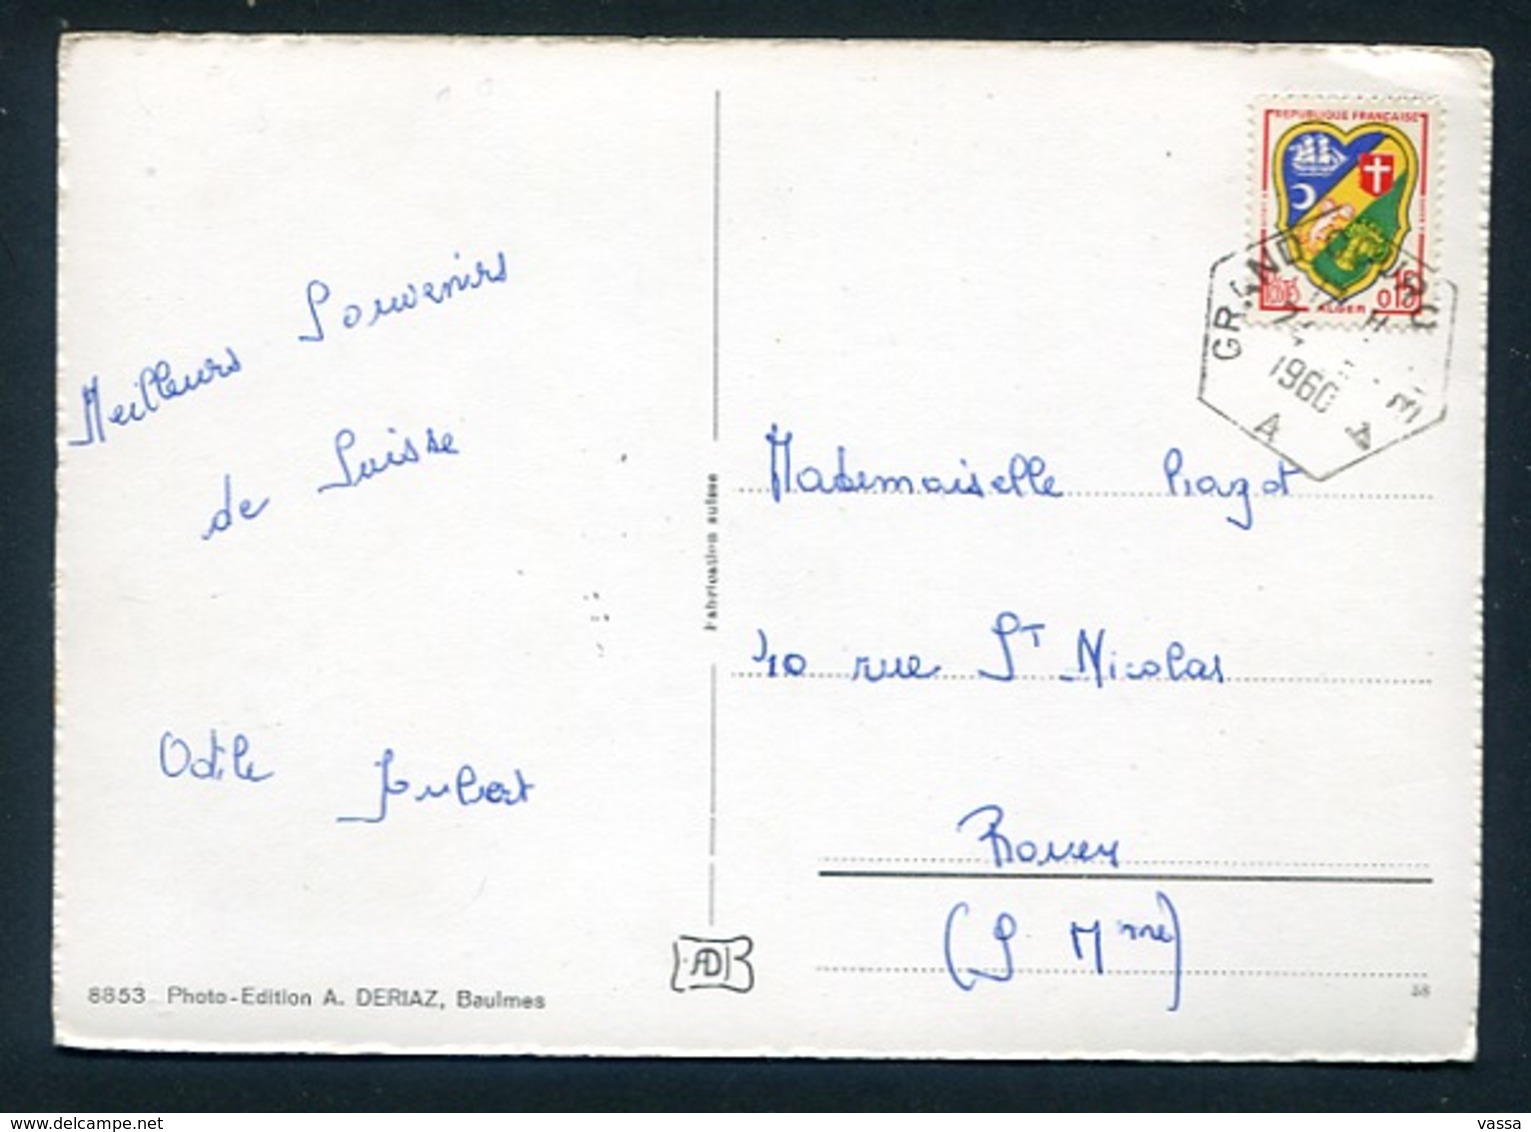 Meilleurs Souvenirs
de Suisse
Odile Jubert
8853 Photo-Edition A. DERIAZ, Baulmes
Fabrication suisse
AD B
REPUBLIQUE FRANÇAISE
POSTES 0,15
ALGER
GRAND
1960
A A
Mademoiselle
10 rue St Nicolas
Rouen
(S Mme)
58
www.delcampe.net
vassa